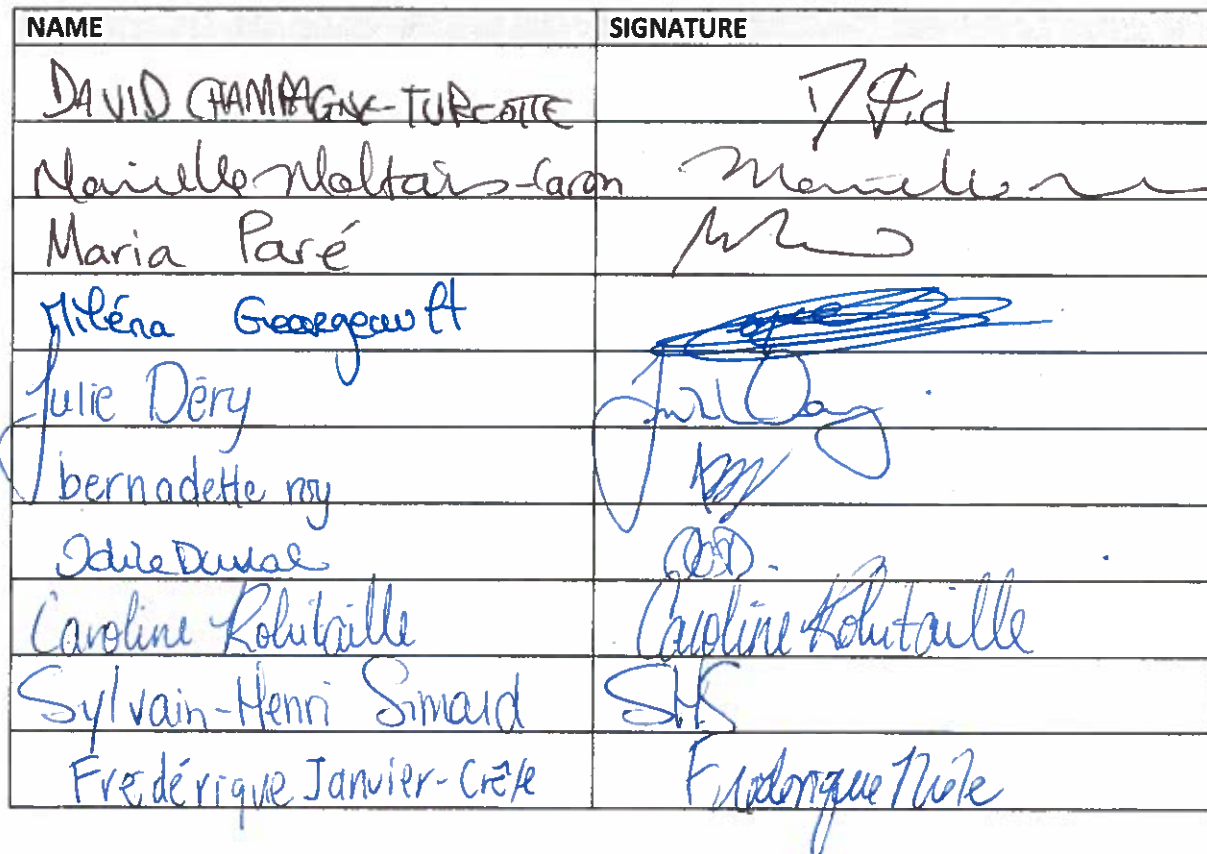 NAME SIGNATURE
DAVID CHAMPAGNE-TURCOTTE
Marielle Maltais-Caron
Maria Paré
Miléna Georgeault
Julie Déry
bernadette roy
Odile Duval
Caroline Robitaille Caroline Robitaille
Sylvain-Henri Simard SHS
Frédérique Janvier-Crête